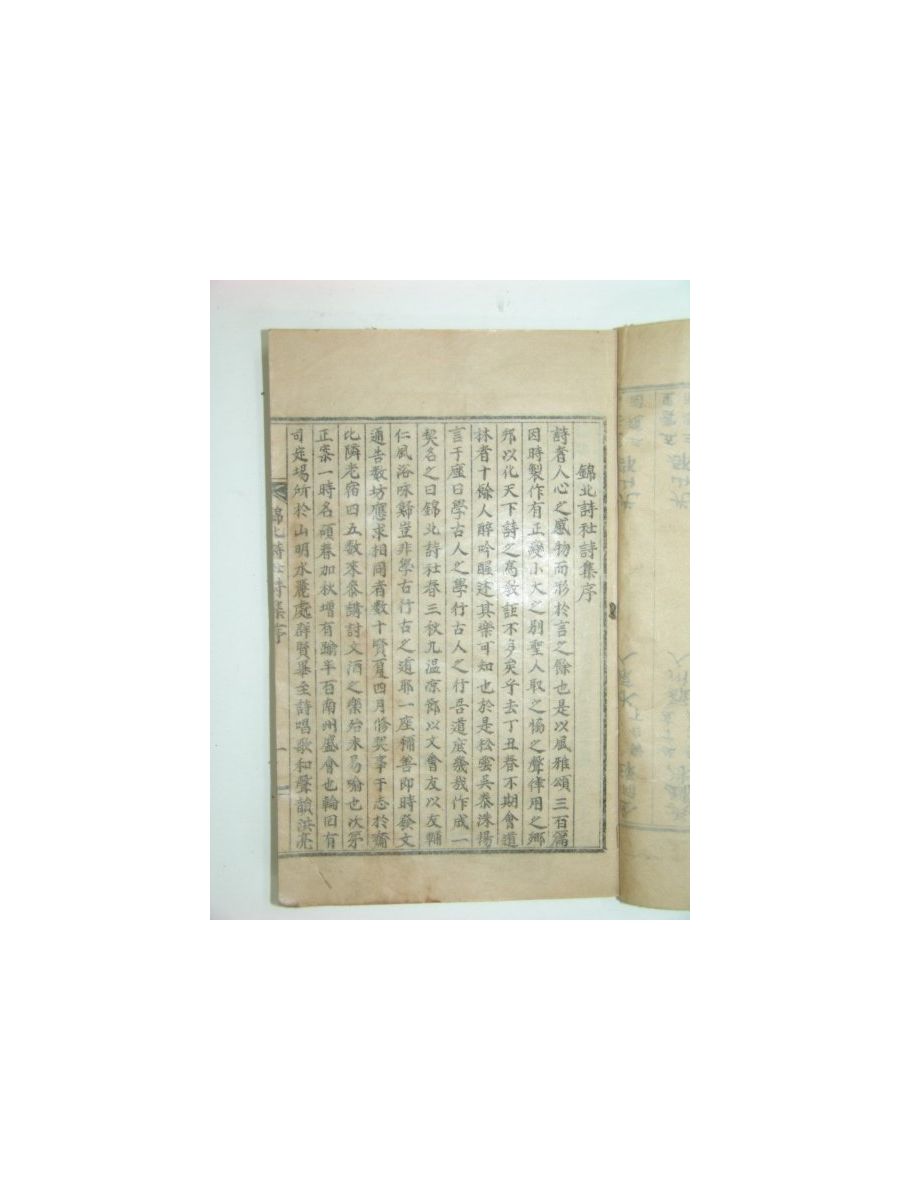 錦北詩社詩集序
詩者人心之感物而形於言之餘也是以風雅頌三百篇
因時製作有正變小大之別聖人取之愓之聲律用之鄉
邦以化天下詩之爲敎詎不多矣乎去丁丑春不期會道
林者十餘人醉吟暢述其樂可知也於是松蜜吳泰洙揚
言于座曰學古人之學行古人之行吾道庶幾哉作成一
契名之曰錦北詩社春三秋九溫凉節以文會友以友輔
仁風浴咏歸豈非學古行古之道耶一座稱善卽時發文
通告数坊應求相同者数十賢夏四月修契事于志於齋
比隣老宿四五数來叅講討文酒之樂始未易喻也次第
正案一時名碩春加秋增有踰半百南州盛會也輪回有
司定場所於山明水麗處群賢畢至詩唱歌和聲韻洪亮
錦北詩社詩集序
一